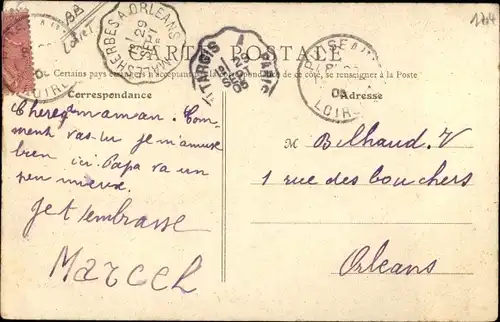 BB
Loiret
1704
MALESHERBES A ORLEANS
29
SEPT
MONTARGIS
PARIS
29
LOIRET
CARTE POSTALE
Certains pays étrangers n'acceptant pas la correspondance de ce côté, se renseigner à la Poste
Correspondance
Adresse
Chere maman. Com-
ment vas-tu je m'amuse
bien ici. Papa va un
peu mieux.
Je t'embrasse
Marcel
M Bilhaud. V
1 rue des bouchers
Orleans